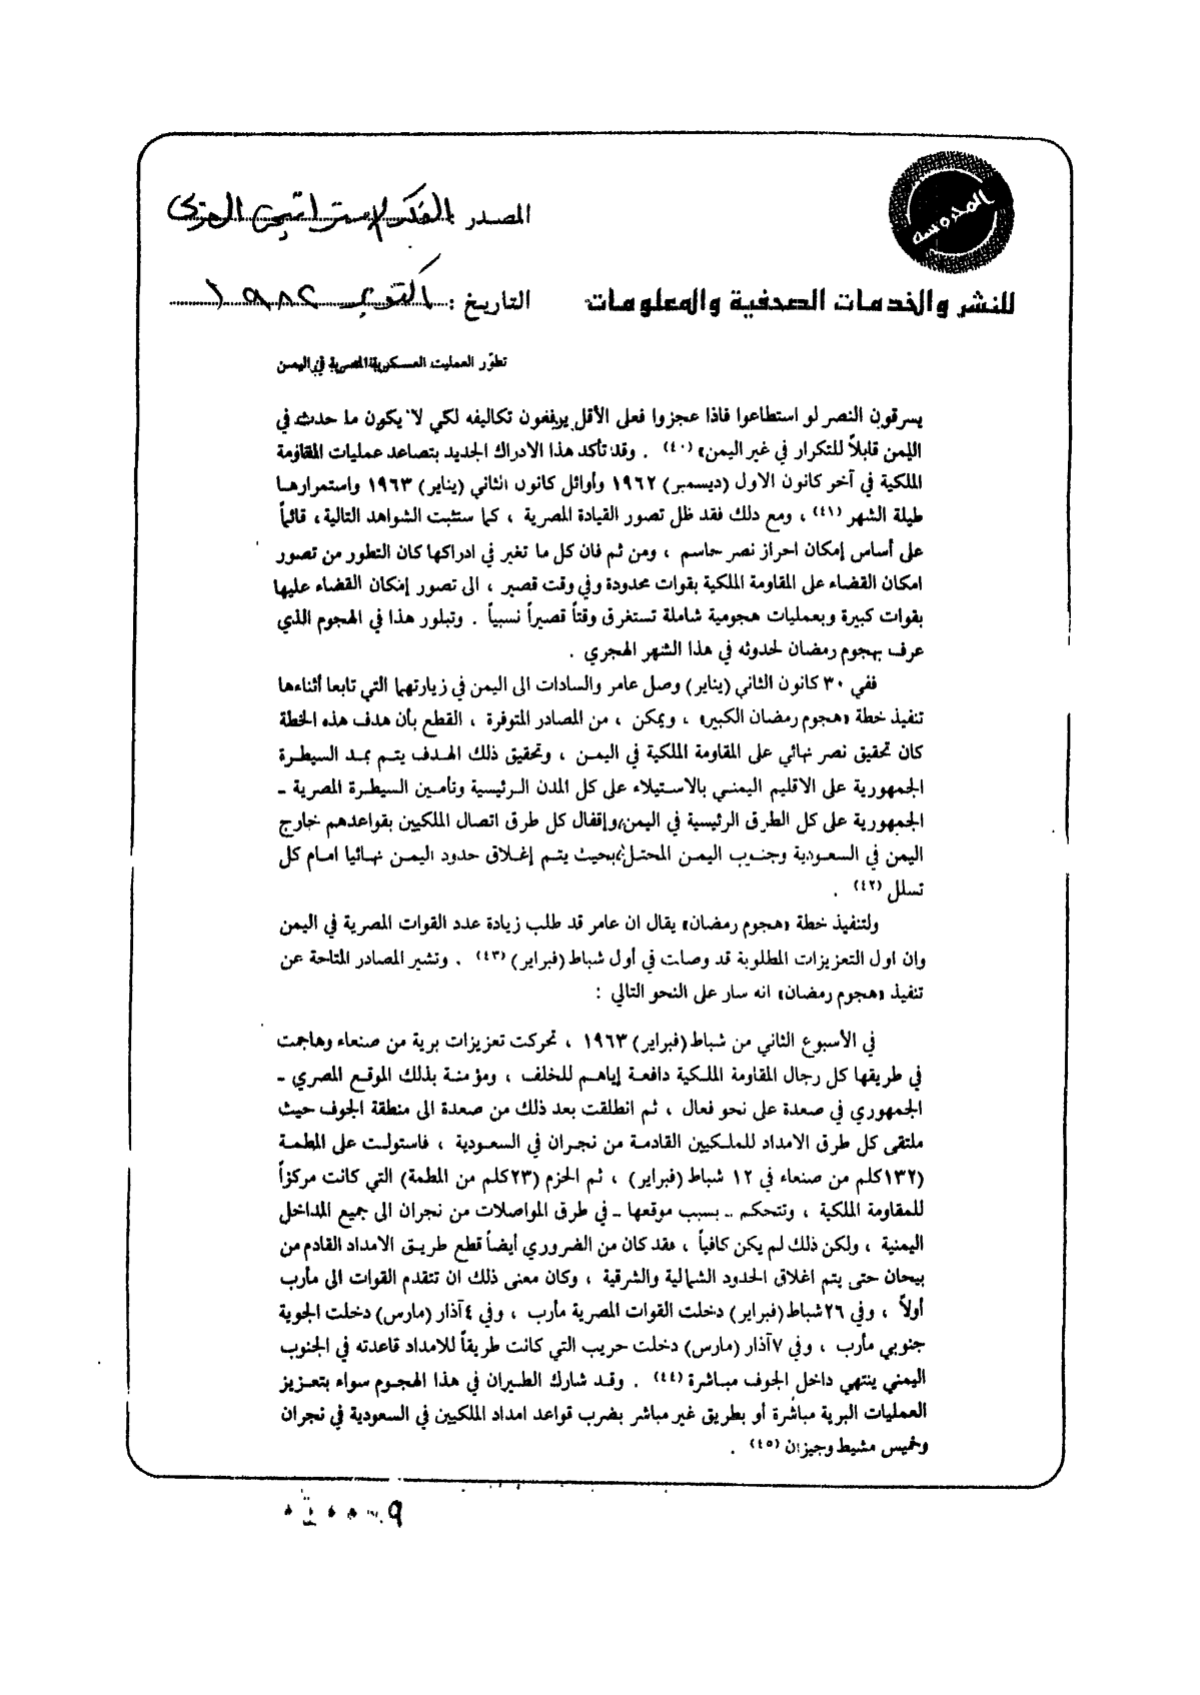 المحروسه
المصدر : الفكر الاستراتيجي العربي
للنشر والخدمات الصحفية والمعلومات
التاريخ : اكتوبر ١٩٨٢
تطوّر العمليت العسكرية المصرية في اليمن
يسرقون النصر لو استطاعوا فاذا عجزوا فعلى الأقل يرفعون تكاليفه لكي لا يكون ما حدث في
اليمن قابلاً للتكرار في غير اليمن» (٤٠) . وقد تأكد هذا الادراك الجديد بتصاعد عمليات المقاومة
الملكية في آخر كانون الاول (ديسمبر) ١٩٦٢ وأوائل كانون الثاني (يناير) ١٩٦٣ واستمرارها
طيلة الشهر (٤١) ، ومع ذلك فقد ظل تصور القيادة المصرية ، كما ستثبت الشواهد التالية ، قائماً
على أساس إمكان احراز نصر حاسم ، ومن ثم فان كل ما تغير في ادراكها كان التطور من تصور
امكان القضاء على المقاومة الملكية بقوات محدودة وفي وقت قصير ، الى تصور إمكان القضاء عليها
بقوات كبيرة وبعمليات هجومية شاملة تستغرق وقتاً قصيراً نسبياً . وتبلور هذا في الهجوم الذي
عرف بهجوم رمضان لحدوثه في هذا الشهر الهجري .
ففي ٣٠ كانون الثاني (يناير) وصل عامر والسادات الى اليمن في زيارتهما التي تابعا أثناءها
تنفيذ خطة «هجوم رمضان الكبير» ، ويمكن ، من المصادر المتوفرة ، القطع بأن هدف هذه الخطة
كان تحقيق نصر نهائي على المقاومة الملكية في اليمن ، وتحقيق ذلك الهدف يتم بمد السيطرة
الجمهورية على الاقليم اليمني بالاستيلاء على كل المدن الرئيسية وتأمين السيطرة المصرية -
الجمهورية على كل الطرق الرئيسية في اليمن،وإقفال كل طرق اتصال الملكيين بقواعدهم خارج
اليمن في السعودية وجنوب اليمن المحتل،بحيث يتم إغلاق حدود اليمن نهائيا امام كل
تسلل (٤٢) .
ولتنفيذ خطة «هجوم رمضان» يقال ان عامر قد طلب زيادة عدد القوات المصرية في اليمن
وان اول التعزيزات المطلوبة قد وصلت في أول شباط (فبراير) (٤٣) . وتشير المصادر المتاحة عن
تنفيذ «هجوم رمضان» انه سار على النحو التالي :
في الأسبوع الثاني من شباط (فبراير) ١٩٦٣ ، تحركت تعزيزات برية من صنعاء وهاجمت
في طريقها كل رجال المقاومة الملكية دافعة إياهم للخلف ، ومؤمنة بذلك الموقع المصري -
الجمهوري في صعدة على نحو فعال ، ثم انطلقت بعد ذلك من صعدة الى منطقة الجوف حيث
ملتقى كل طرق الامداد للملكيين القادمة من نجران في السعودية ، فاستولت على المطمة
(١٣٢كلم من صنعاء في ١٢ شباط (فبراير) ، ثم الحزم (٢٣كلم من المطمة) التي كانت مركزاً
للمقاومة الملكية ، وتتحكم - بسبب موقعها - في طرق المواصلات من نجران الى جميع المداخل
اليمنية ، ولكن ذلك لم يكن كافياً ، فقد كان من الضروري أيضاً قطع طريق الامداد القادم من
بيحان حتى يتم اغلاق الحدود الشمالية والشرقية ، وكان معنى ذلك ان تتقدم القوات الى مأرب
أولاً ، وفي ٢٦شباط (فبراير) دخلت القوات المصرية مأرب ، وفي ٤آذار (مارس) دخلت الجوبة
جنوبي مأرب ، وفي ٧آذار (مارس) دخلت حريب التي كانت طريقاً للامداد قاعدته في الجنوب
اليمني ينتهي داخل الجوف مباشرة (٤٤) . وقد شارك الطيران في هذا الهجوم سواء بتعزيز
العمليات البرية مباشرة أو بطريق غير مباشر بضرب قواعد امداد الملكيين في السعودية في نجران
وخميس مشيط وجيزان (٤٥) .